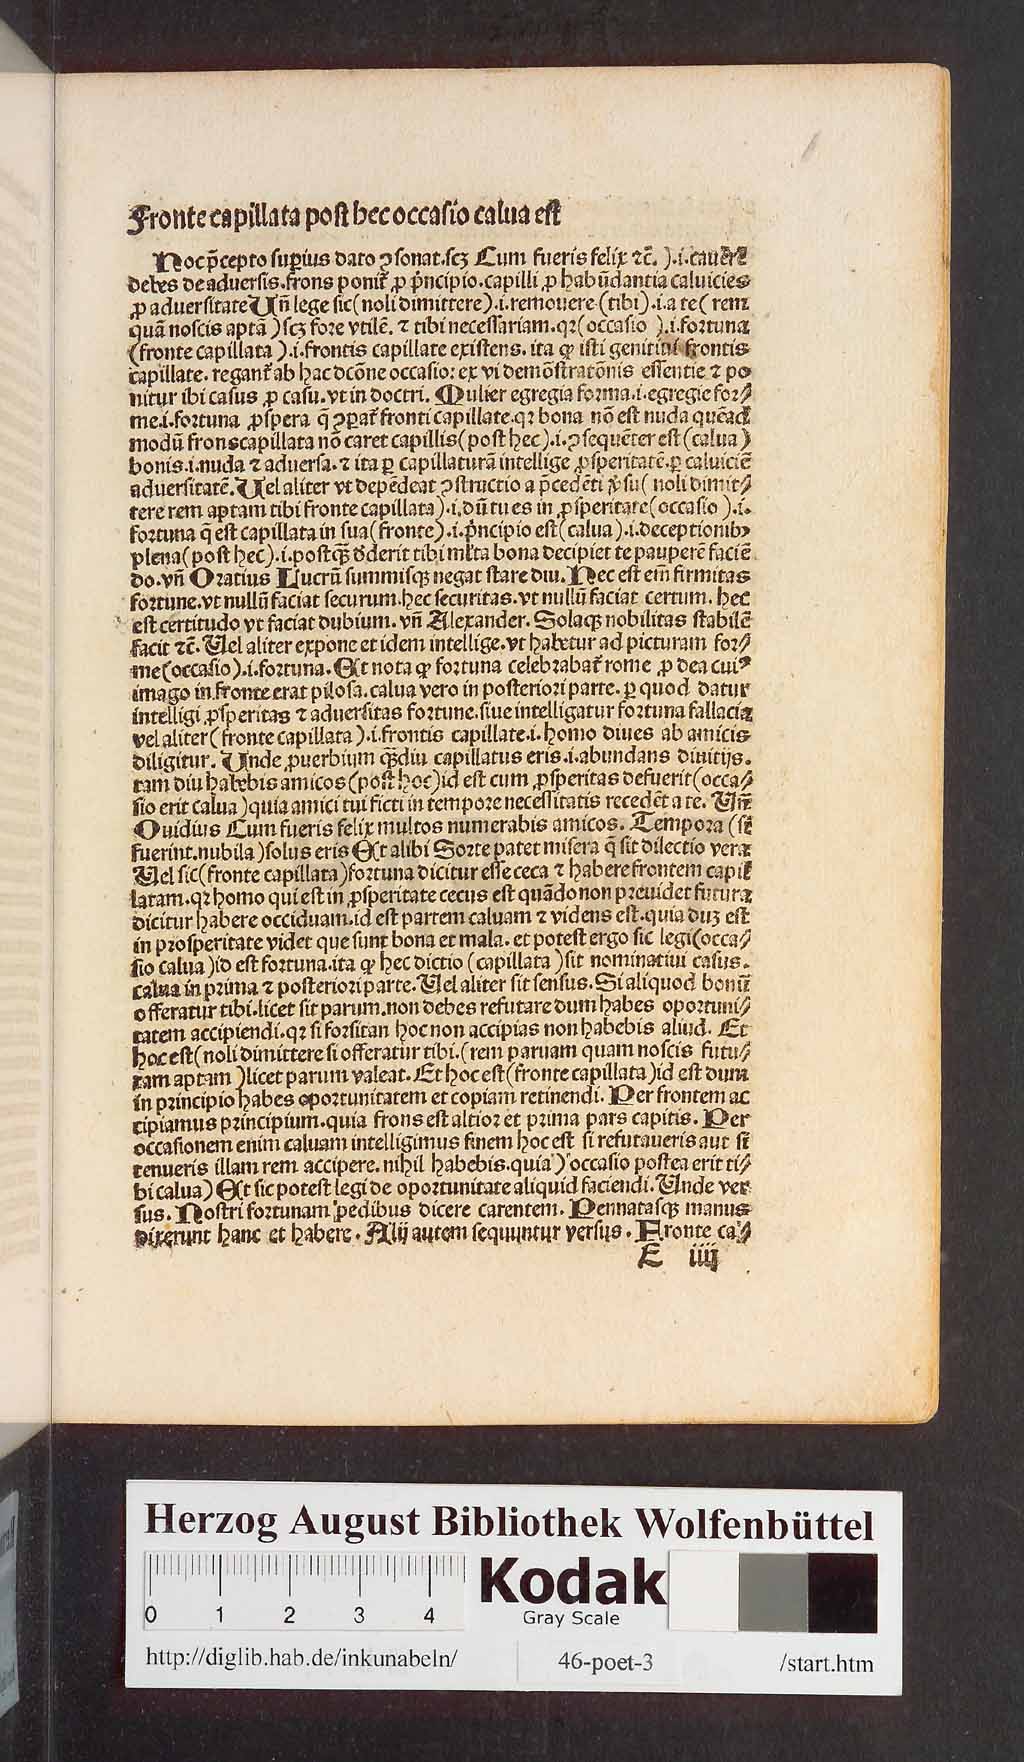 Fronte capillata post hec occasio calua est
Hoc p̄cepto superius dato ꝯsonat.scꝫ Cum fueris felix ⁊c̄. ).i.cauere
debes de aduersis.frons ponit᷑ ꝓ prīncipio.capilli ꝓ habūdantia caluicies
ꝓ aduersitate Un̄ lege sic(noli dimittere).i.remouere(tibi).i.a te(rem
quā noscis aptā)scꝫ fore vtilē. ⁊ tibi necessariam.qꝛ(occasio ).i.fortuna
(fronte capillata).i.frontis capillate existens. ita ꝙ isti genitiui frontis
capillate. regant᷑ ab hac dcōne occasio: ex vi demōstratōnis essentie ⁊ po
nitur ibi casus ꝓ casu.vt in doctri. Mulier egregia forma.i.egregie for⸗
me.i.fortuna ꝓspera q̄ ꝯꝑat᷑ fronti capillate.qꝛ bona nō est nuda quēad
modū frons capillata nō caret capillis(post hec).i.ꝯsequēter est (calua)
bonis.i.nuda ⁊ aduersa.⁊ ita ꝑ capillaturā intellige ꝓsperitatē.ꝑ caluiciē
aduersitatē. Uel aliter vt depēdeat ꝯstructio a p̄cedēti v̓su( noli dimit⸗
tere rem aptam tibi fronte capillata).i.dū tu es in ꝓsperitate(occasio ).i.
fortuna q̄ est capillata in sua(fronte).i.prīncipio est(calua).i.deceptionibꝰ
plena(post hec).i.postq̄ꝫ dederit tibi mlta bona decipiet te pauperē faciē
do.vn̄ Oratius Lucrū summisqꝫ negat stare diu. Nec est em̄ firmitas
fortune.vt nullū faciat securum.hec securitas.vt nullū faciat certum. hec
est certitudo vt faciat dubium. vn̄ Alexander. Solaqꝫ nobilitas stabilē
facit ⁊c̄. Uel aliter expone et idem intellige.vt habetur ad picturam for⸗
me(occasio).i.fortuna. Et nota ꝙ fortuna celebrabat᷑ rome ꝓ dea cuiꝰ
imago in fronte erat pilosa.calua vero in posteriori parte. ꝑ quod datur
intelligi ꝓsperitas ⁊ aduersitas fortune.siue intelligatur fortuna fallacia
vel aliter(fronte capillata).i.frontis capillate.i.homo diues ab amicis
diligitur. Unde ꝓuerbium qᷓꝫdiu capillatus eris.i.abundans diuitijs.
tam diu habebis amicos(post hoc)id est cum ꝓsperitas defuerit(occa⸗
sio erit calua)quia amici tui ficti in tempore necessitatis recedēt a te. Un̄
Ouidius Cum fueris felix multos numerabis amicos. Tempora (si
fuerint.nubila)solus eris Et alibi Sorte patet misera q̄ sit dilectio vera
Uel sic(fronte capillata)fortuna dicitur esse ceca ⁊ habere frontem capil
latam.qꝛ homo qui est in ꝓsperitate cecus est quādo non preuidet futura
dicitur habere occiduam.id est partem caluam ⁊ videns est.quia dum est
in prosperitate videt que sunt bona et mala. et potest ergo sic legi(occa⸗
sio calua)id est fortuna.ita ꝙ hec dictio (capillata )sit nominatiui casus.
calua in prima ⁊ posteriori parte. Uel aliter sit sensus. Si aliquod bonū
offeratur tibi.licet sit parum.non debes refutare dum habes oportuni⸗
tatem accipiendi.qꝛ si forsitan hoc non accipias non habebis aliud. Et
hoc est(noli dimittere si offeratur tibi.(rem paruam quam noscis futu⸗
ram aptam )licet parum valeat. Et hoc est(fronte capillata)id est dum
in principio habes oportunitatem et copiam retinendi. Per frontem ac
cipiamus principium.quia frons est altior et prima pars capitis. Per
occasionem enim caluam intelligimus finem hoc est si refutaueris aut si
tenueris illam rem accipere.nihil habebis.quia)(occasio postea erit ti⸗
bi calua) Et sic potest legi de oportunitate aliquid faciendi. Unde ver
sus. Nostri fortunam pedibus dicere carentem. Pennatasqꝫ manus
dixerunt hanc et habere. Alij autem sequuntur versus. Fronte ca⸗
E iiij
Herzog August Bibliothek Wolfenbüttel
0 1 2 3 4
Kodak
Gray Scale
http://diglib.hab.de/inkunabeln/ 46-poet-3 /start.htm